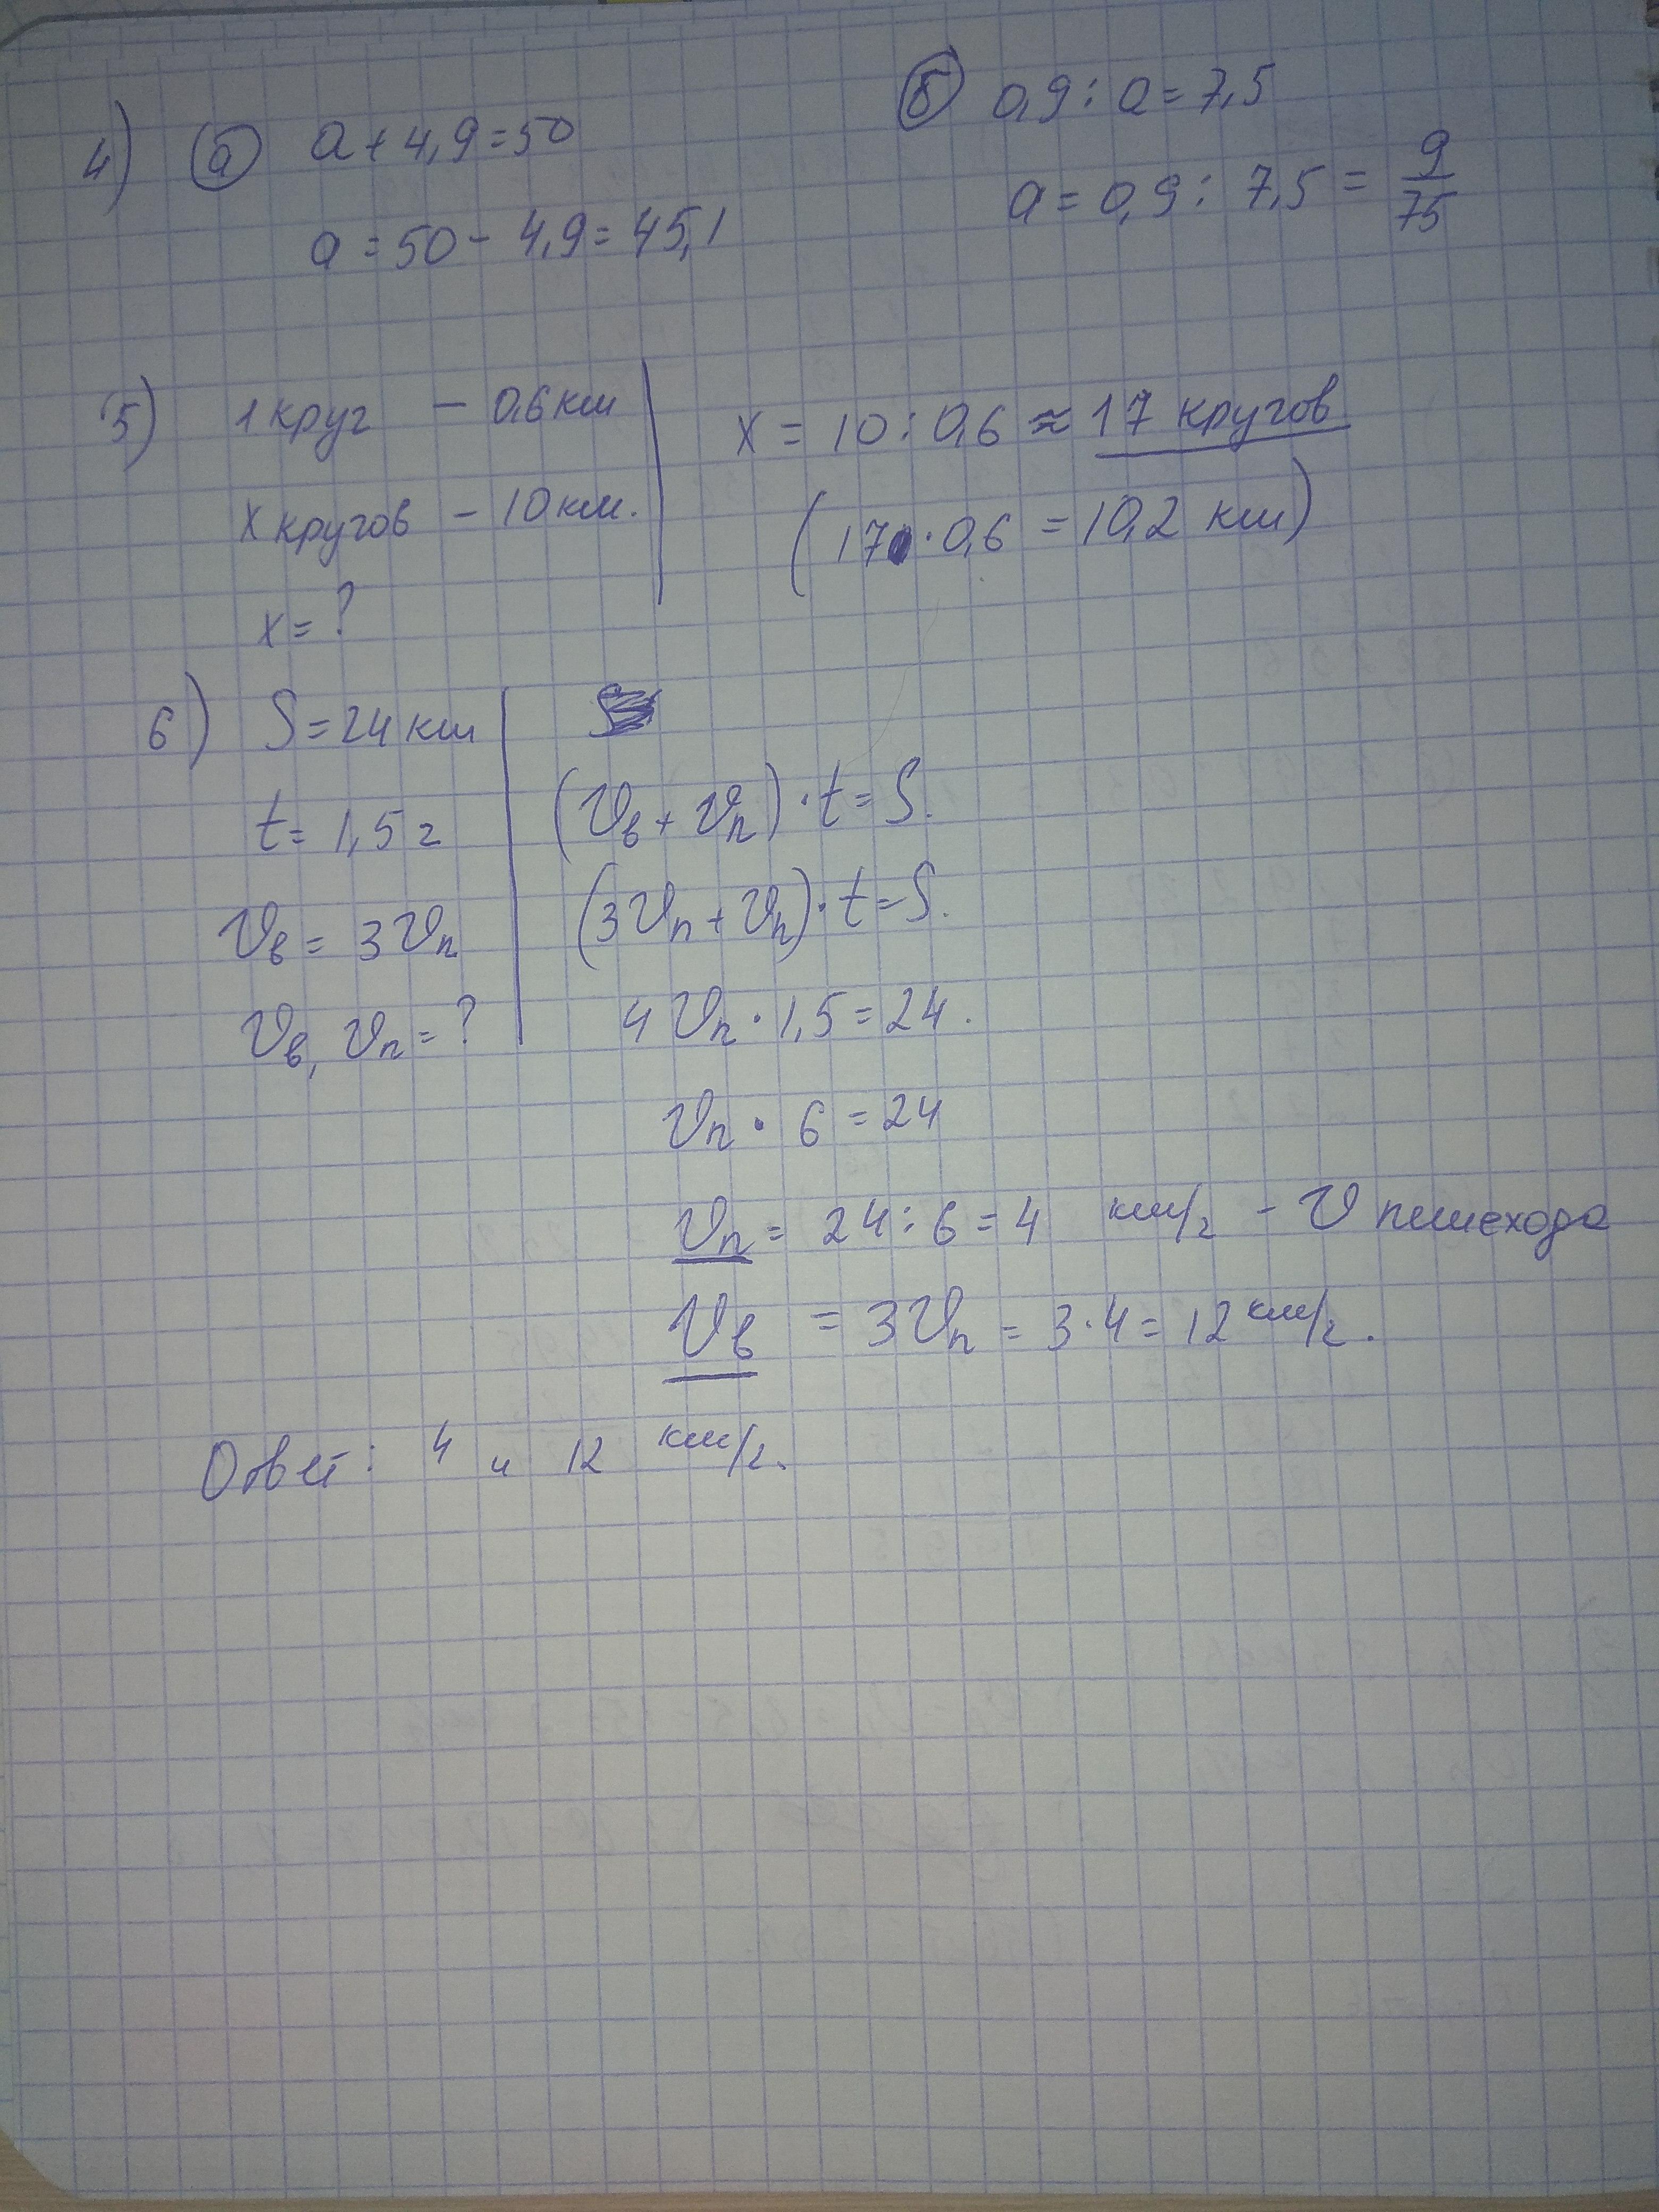 4) а) a + 4,9 = 50
a = 50 - 4,9 = 45,1
б) 0,9 : a = 7,5
a = 0,9 : 7,5 = 9/75
5) 1 круг - 0,6 км
x кругов - 10 км.
x = ?
x = 10 : 0,6 ≈ 17 кругов
(17 · 0,6 = 10,2 км)
6) S = 24 км
t = 1,5 г
Vв = 3Vп
Vв, Vп = ?
(Vв + Vп) · t = S.
(3Vп + Vп) · t = S.
4Vп · 1,5 = 24.
Vп · 6 = 24
Vп = 24 : 6 = 4 км/г - V пешехода
Vв = 3Vп = 3 · 4 = 12 км/г.
Ответ: 4 и 12 км/г.